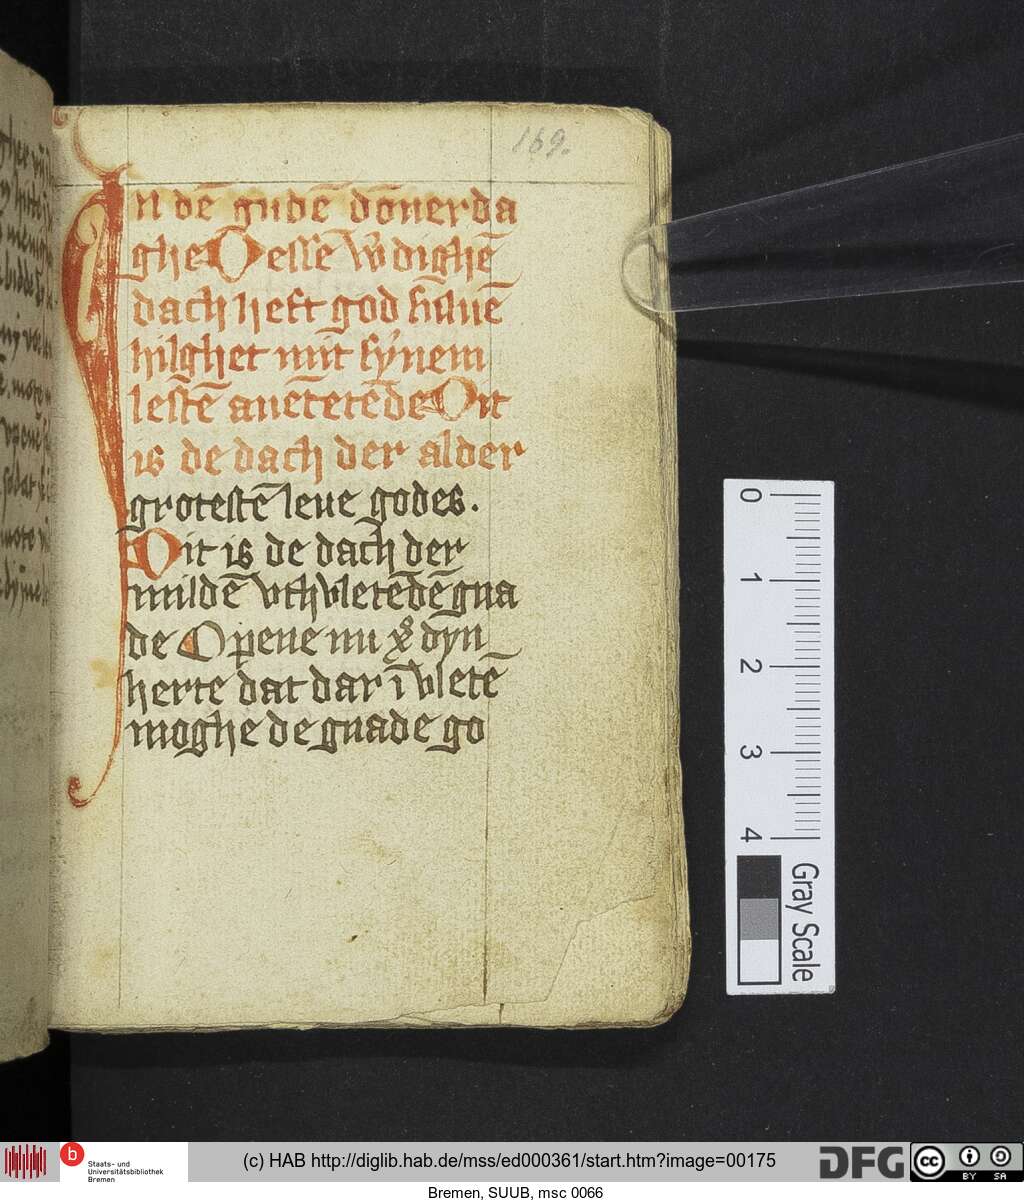 169.
In dē gudē dōnerda
ghe Dessē w̄dighē
dach heft god suluē
hilghet mit synem
lestē auētetē de Dit
is de dach der alder
grotestē leue godes.
Dit is de dach der
mildē vth vletēdē gna
de Opene nu x̄ dyn
herte dat dar ī vletē
moghe de gnade go
0
1
2
3
4
Gray Scale
b
Staats- und
Universitätsbibliothek
Bremen
(c) HAB http://diglib.hab.de/mss/ed000361/start.htm?image=00175
DFG
cc
BY SA
Bremen, SUUB, msc 0066